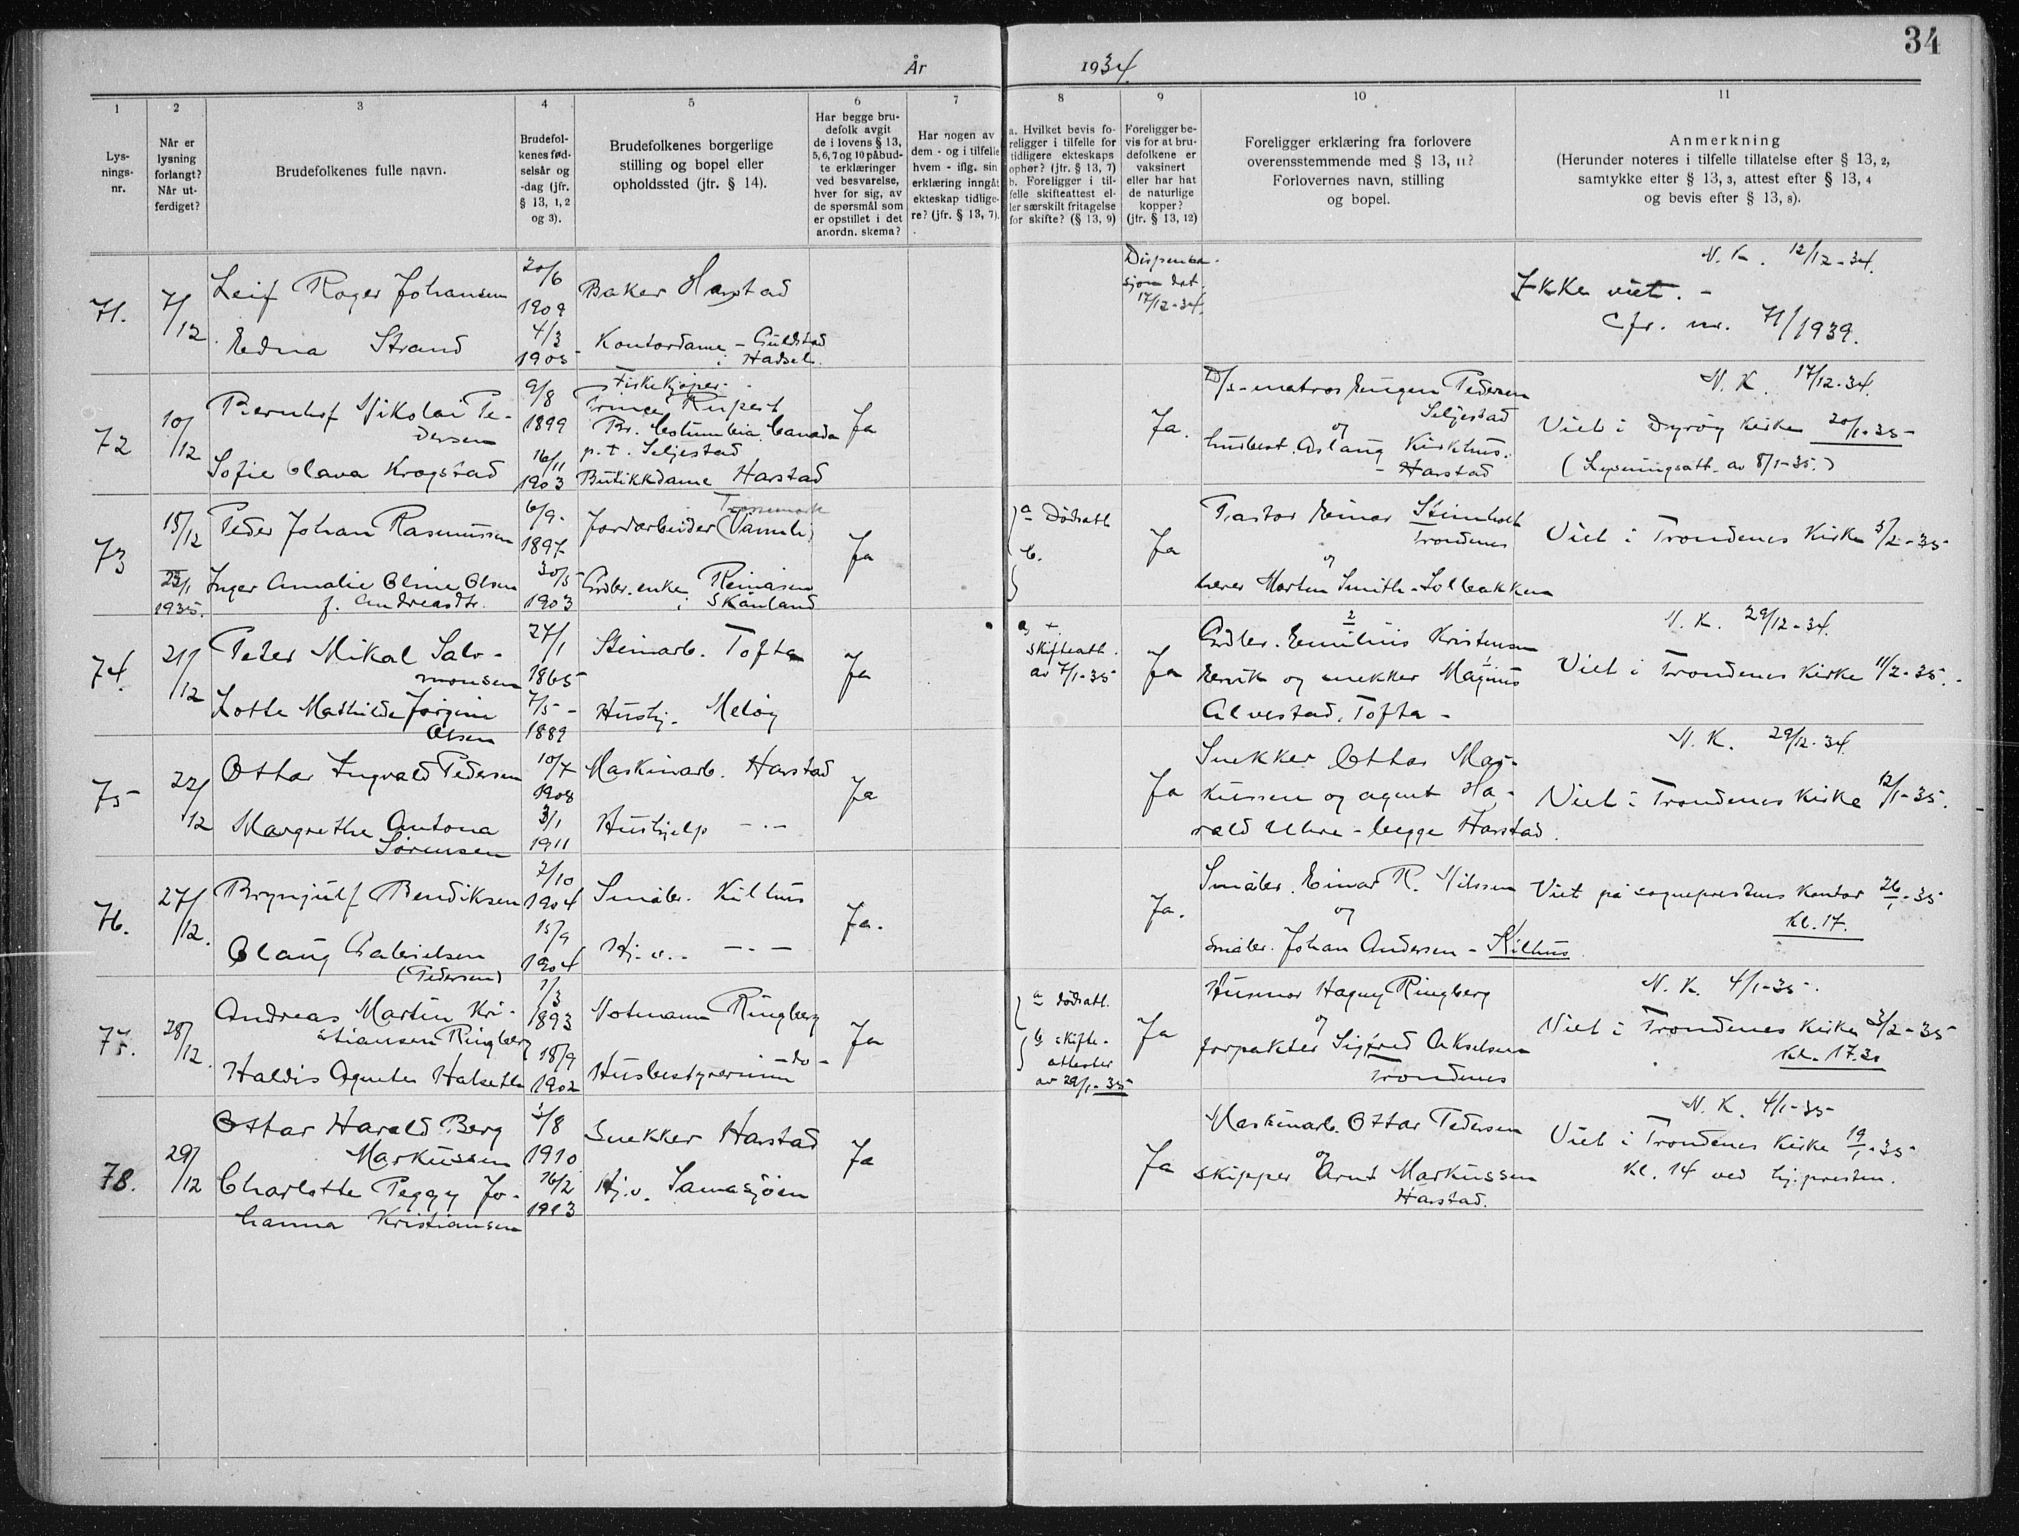 34
År 1934.
1
Lys-
nings-
nr.
2
Når er
lysning
forlangt?
Når ut-
ferdiget?
3
Brudefolkenes fulle navn.
4
Brudefol-
kenes fød-
selsår og
-dag (jfr.
§ 13, 1, 2
og 3).
5
Brudefolkenes borgerlige
stilling og bopel eller
opholdssted (jfr. § 14).
6
Har begge bru-
defolk avgit
de i lovens § 13,
5, 6, 7 og 10 påbud-
te erklæringer
ved besvarelse,
hver for sig, av
de spørsmål som
er opstillet i det
anordn. skema?
7
Har nogen av
dem - og i tilfelle
hvem - iflg. sin
erklæring inngåt
ekteskap tidlige-
re? (jfr. § 13, 7).
8
a. Hvilket bevis fo-
religger i tilfelle for
tidligere ekteskaps
ophør? (jfr. § 13, 7)
b. Foreligger i til-
felle skifteattest el-
ler særskilt fritagelse
for skifte? (§ 13, 9)
9
Foreligger be-
vis for at bru-
defolkene er
vaksinert
eller har hat
de naturlige
kopper?
(jfr. § 13, 12)
10
Foreligger erklæring fra forlovere
overensstemmende med § 13, 11?
Forlovernes navn, stilling
og bopel.
11
Anmerkning
(Herunder noteres i tilfelle tillatelse efter § 13, 2,
samtykke efter § 13, 3, attest efter § 13, 4
og bevis efter § 13, 8).
71.
7/12.
Leif Roger Johansen
20/6
1909
Baker Harstad
Edna Strand
4/3
1905
Kontordame - Guldstad
i Hadsel.
Dispensa-
sjon dat.
17/12-34.
N. K. 12/12-34.
Ikke viet. -
Cfr. nr. 71/1939.
72
10/12
Bernhof Nikolai Pe-
dersen
9/8
1899
Fiskekjøper.
Prince Rupert
Br. Columbia Canada
p.t. Seljestad
Sofie Olava Krogstad
16/11
1903
Butikkdame Harstad
Ja
Ja.
D/s-matros Eugen Pedersen
Seljestad
og
husbest. Aslaug Kirkhus.
- Harstad
N. K. 17/12-34.
Viet i Dyrøy kirke 20/1-35
(Lysningsatt. av 8/1-35.)
73
15/12
23/1
1935.
Peder Johan Rasmussen
6/9-
1897
Jordarbeider (Vannli)
Inger Amalie Oline Olsen
f. Andreasdtr.
30/5
1903
Grdbr. enke Reinåsen
i Skånland
Ja
a Dødsatt
b.
Ja
Pastor Einar Steinholt
Trondenes
og
lærer Morten Smith-Solbakken
Viet i Trondenes kirke 3/2-35
74.
21/12
Peter Mikal Salo-
monsen
27/1
1865
Steinarb. Tofta
Lotte Mathilde Jørgine
Olsen
7/5-
1889
Hushj. Meløy
Ja
a, +.
skifteatt.
av 7/1-35
Ja
Grdbr. Emilius Kristensen
Ervik og snekker Magnus
Alvestad, Tofta -
N. K. 29/12-34.
Viet i Trondenes kirke 11/2-35.
75
22/12
Ottar Ingvald Pedersen
10/7
1908
Maskinarb. Harstad
Margrethe Antona
Sørensen
3/1
1911
Hushjelp -.-
Ja
Ja
Snekker Ottar Mar-
kussen og agent Ha-
rald Uhre - begge Harstad.
N. K. 29/12-34.
Viet i Trondenes kirke 12/1-35.
76.
27/12.
Brynjulf Bendiksen
2/10
1904
Småbr. Kilhus
Olaug Gabrielsen
(Pedersen)
15/9
1904
Hj.v.. -.-
Ja.
Ja.
Småbr. Einar R. Nilssen
og
småbr. Johan Andersen - Kilhus
Viet på sogneprestens kontor 26/1-35
kl. 17.
77.
28/12.
Andreas Martin Kri-
stiansen Ringberg
1/3
1893
Notmann Ringberg
Haldis Agnete Halseth
18/9
1902
Husbestyrerinne -do-
Ja
a dødsatt.
b skifte-
attester
av 29/1-35
Ja
Husmor Hagny Ringberg
og
forpakter Sigfred Akselsen
Trondenes
N. K. 4/1-35.
Viet i Trondenes kirke 3/2-35
kl. 17.30
78.
29/12
Ottar Harald Berg
Markussen
5/8
1910
Snekker Harstad
Charlotte Peggy Jo-
hanna Kristiansen
16/2
1913
Hj.v. Samasjøen
Ja
Ja
Maskinarb. Ottar Pedersen
og
skipper Arnt Markussen
Harstad.
N. K. 4/1-35-
Viet i Trondenes kirke 19/1-35
kl. 14 ved hj.presten.